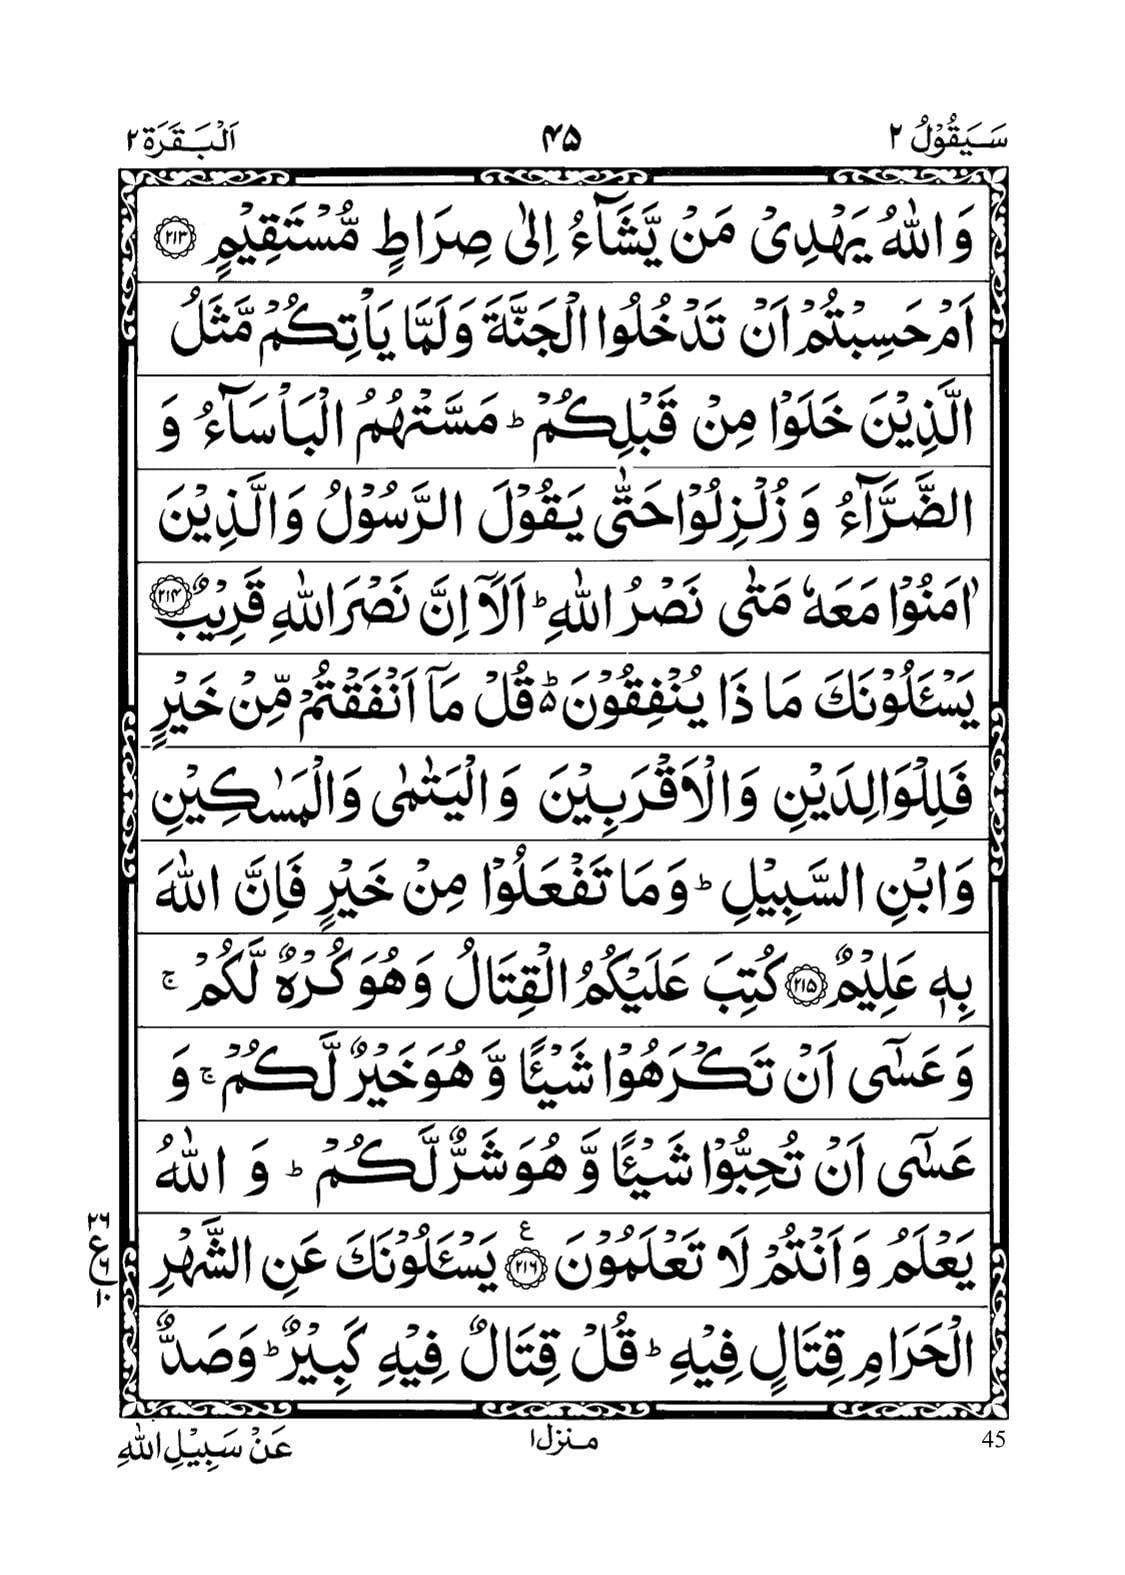 سَيَقُوْلُ ٢ ۴۵ اَلْبَقَرَة ٢
وَاللّٰهُ يَهْدِىْ مَنْ يَّشَآءُ اِلٰى صِرَاطٍ مُّسْتَقِيْمٍ ﴿٢١٣﴾
اَمْ حَسِبْتُمْ اَنْ تَدْخُلُوا الْجَنَّةَ وَلَمَّا يَاْتِكُمْ مَّثَلُ
الَّذِيْنَ خَلَوْا مِنْ قَبْلِكُمْ ؕ مَسَّتْهُمُ الْبَاْسَآءُ وَ
الضَّرَّآءُ وَ زُلْزِلُوْا حَتّٰى يَقُوْلَ الرَّسُوْلُ وَالَّذِيْنَ
اٰمَنُوْا مَعَهٗ مَتٰى نَصْرُ اللّٰهِ ؕ اَلَاۤ اِنَّ نَصْرَ اللّٰهِ قَرِيْبٌ ﴿٢١۴﴾
يَسْـَٔلُوْنَكَ مَا ذَا يُنْفِقُوْنَ ؕ۵ قُلْ مَاۤ اَنْفَقْتُمْ مِّنْ خَيْرٍ
فَلِلْوَالِدَيْنِ وَالْاَقْرَبِيْنَ وَالْيَتٰمٰى وَالْمَسٰكِيْنِ
وَابْنِ السَّبِيْلِ ؕ وَمَا تَفْعَلُوْا مِنْ خَيْرٍ فَاِنَّ اللّٰهَ
بِهٖ عَلِيْمٌ ﴿٢١۵﴾ كُتِبَ عَلَيْكُمُ الْقِتَالُ وَهُوَ كُرْهٌ لَّكُمْ ۚ
وَعَسٰۤى اَنْ تَكْرَهُوْا شَيْـًٔا وَّهُوَ خَيْرٌ لَّكُمْ ۚ وَ
عَسٰۤى اَنْ تُحِبُّوْا شَيْـًٔا وَّهُوَ شَرٌّ لَّكُمْ ؕ وَ اللّٰهُ
يَعْلَمُ وَاَنْتُمْ لَا تَعْلَمُوْنَ ﴿٢١٦﴾ ع يَسْـَٔلُوْنَكَ عَنِ الشَّهْرِ
٢٦
ع
٦
١٠
الْحَرَامِ قِتَالٍ فِيْهِ ؕ قُلْ قِتَالٌ فِيْهِ كَبِيْرٌ ؕ وَصَدٌّ
45 منزل ١ عَنْ سَبِيْلِ اللّٰهِ